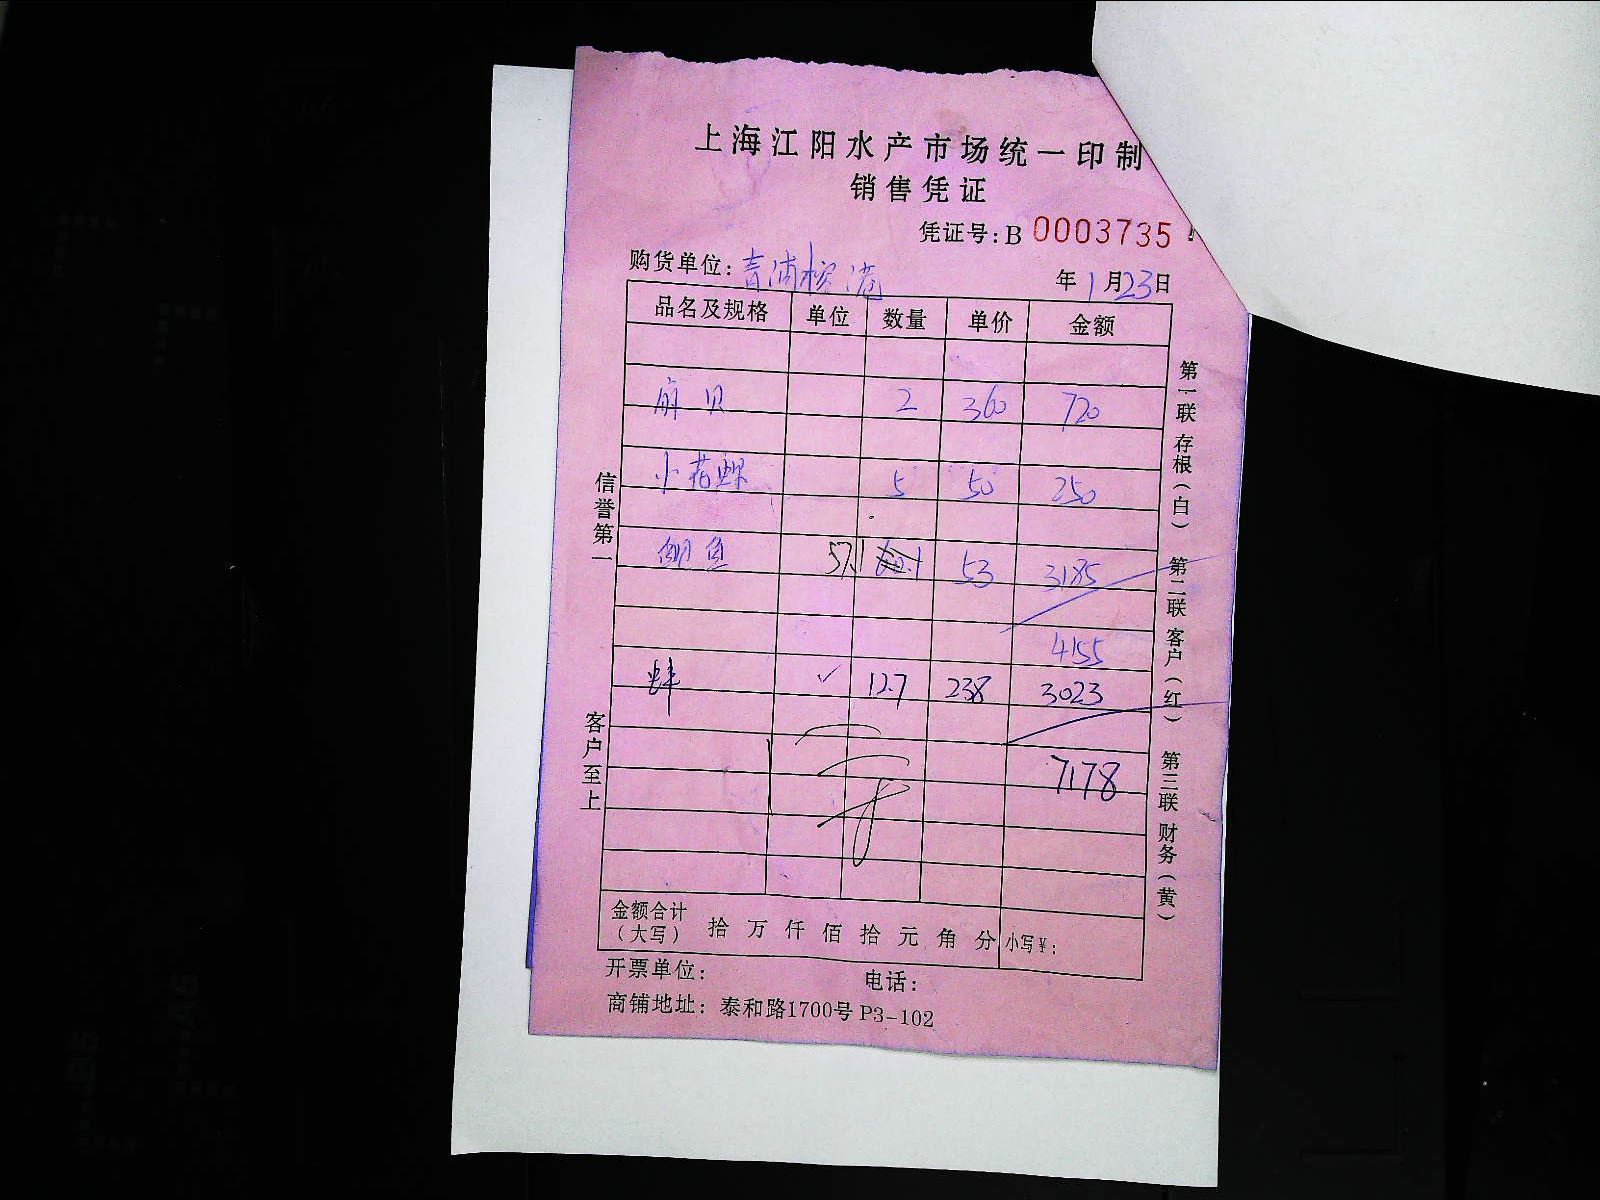 上海江阳水产市场统一印制
销售凭证
凭证号:B 0003735
购货单位:青浦 港 年1月23日
品名及规格 单位 数量 单价 金额
贝 2 360 720
小花螺 5 50 250
鲷鱼 57.1 53 3185
4155
蚌 ✓ 12.7 238 3023
7178
金额合计(大写) 拾万仟佰拾元角分 小写¥:
开票单位: 电话:
商铺地址: 泰和路1700号 P3-102
信誉第一 客户至上
第一联 存根(白) 第二联 客户(红) 第三联 财务(黄)